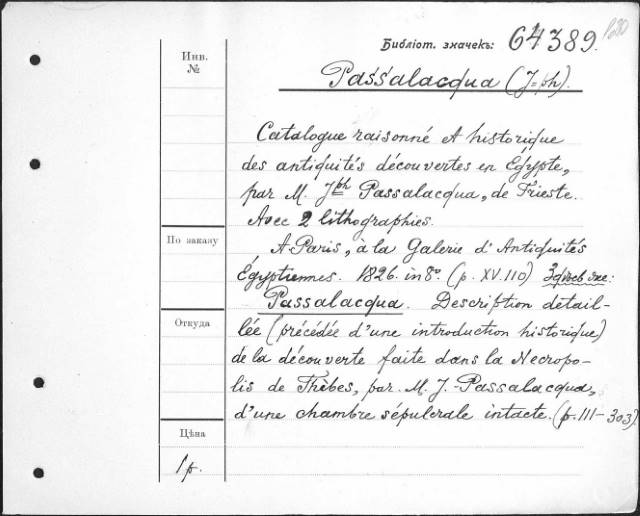 Библіот. значекъ: 64389.
Инв.
№
Passalacqua (J=ph).
Catalogue raisonné et historique
des antiquités découvertes en Egypte,
par M. Jph Passalacqua, de Trieste.
Avec 2 lithographies.
По заказу
A Paris, à la Galerie d'Antiquités
Égyptiennes. 1826. in 8º. (p. XV.110)
Passalacqua. Description détail-
Откуда
lée (précédée d'une introduction historique)
de la découverte faite dans la Necropo-
lis de Thèbes, par M. J. Passalacqua,
d'une chambre sépulcrale intacte. (p. 111-303)
Цѣна
1 р.